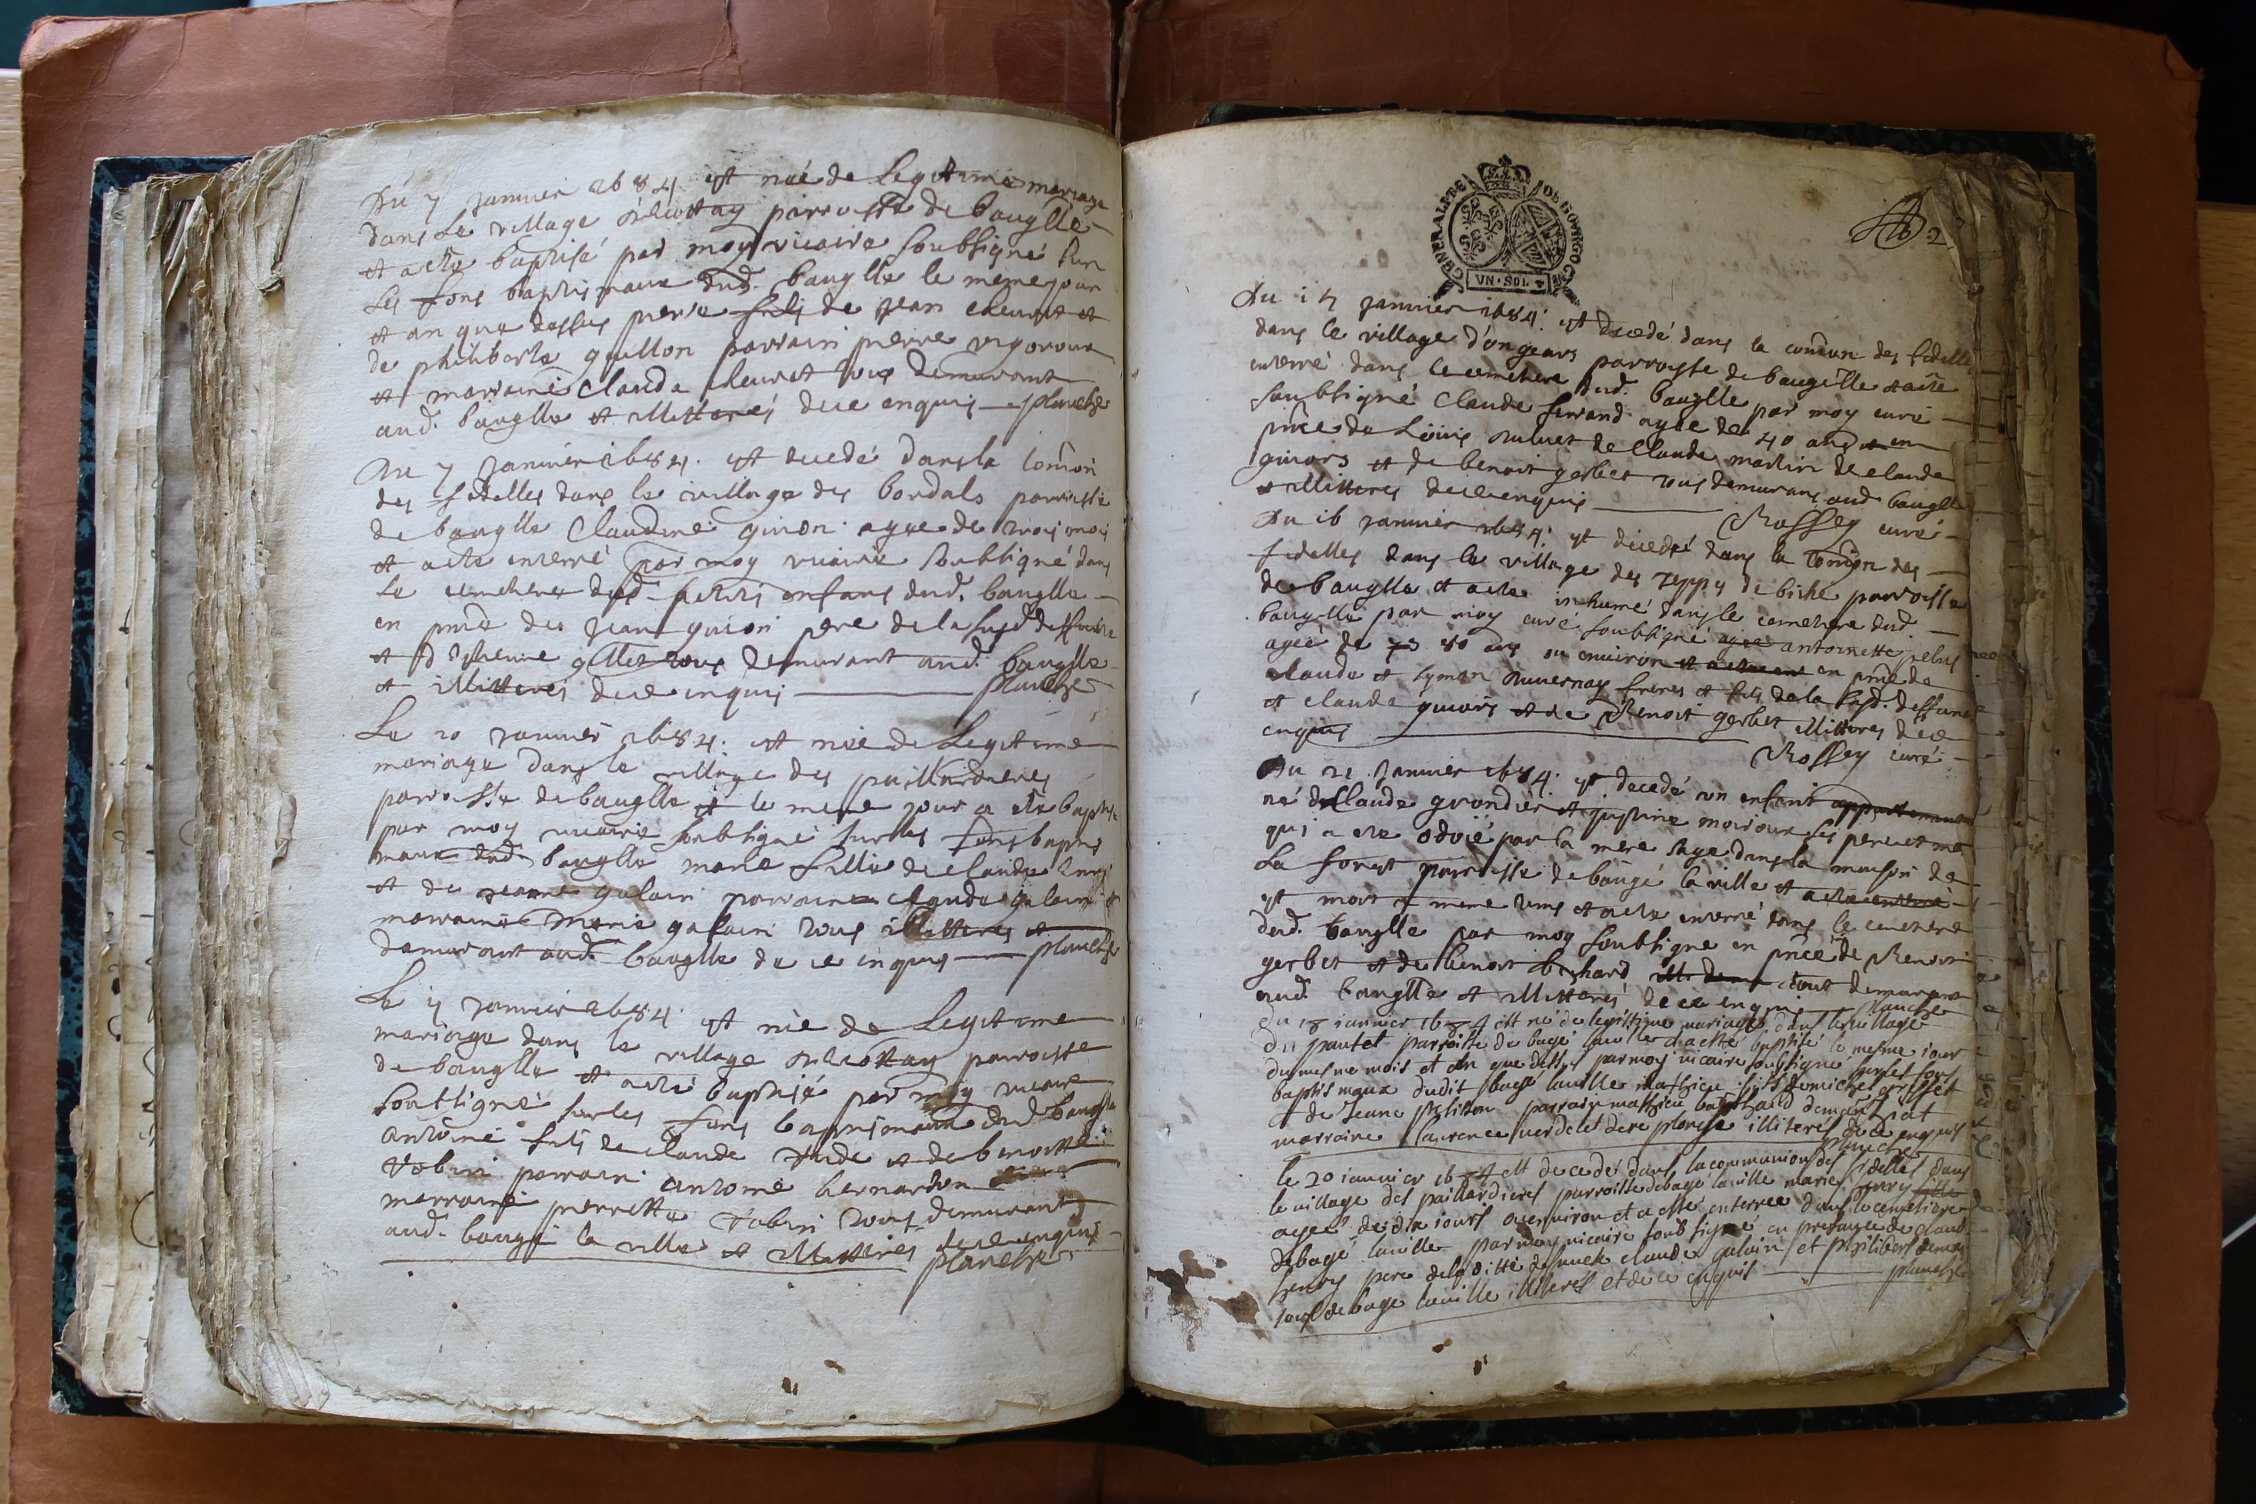 Du 7 janvier 1684 est naé de Legitime mariage
dans Le village parroisse de bauglle
et a este baptisé par moy vicaire soubsigné sur
les fons baptismaux dud. bauglle le meme jour
et an que dessus pierre fils de jean chevrat et
de philiberte guillon parrain pierre vigoroux
et marraine Claude chevrat tous demeurant
aud. bauglle et illitterés de ce enquis planche
Du 7 Janvier 1684. est decedé dans la comōn
des fidelles dans le village des bordals parroisse
de bauglle Claudine guion agee de trois mois
et a este enterré par moy vicaire soubsigné dans
Le cemetiere des petits enfans dud. bauglle
en pn̄ce de Jean guion pere de la susd. deffuncte
et d'Estienne tous demeurant aud. bauglle
et illitterés de ce enquis planche
Le 10 janvier 1684. est née de Legitime
mariage dans le village des paillardieres
parroisse de bauglle et le meme jour a este baptisé
par moy vicaire soubsigné sur les fons baptis
maux dud. bauglle marie fille de claude henry
et de jeanne galain parrain claude galain et
marraine marie galain tous illitterés et
demeurant aud. bauglle de ce enquis planche
Le janvier 1684. est née de Legitime
mariage dans le village parroisse
de bauglle et a este baptisé par moy vicaire
soubsigné sur les fons baptismaux dud bauglle
antoine fils de claude et de benoitte
Tobin parrain antoine bernardon
marraine pierrette Tobin tous demeurant
aud. baugé la ville et illitterés de ce enquis
planche
GENERALITE DE BOVRGOGNE
VN·SOL
2
Du janvier 1684. est decedé dans la comōion des fidelles
dans le village d'ongears parroisse de baugelle et a este
enterré dans le cemetiere dud. bauglle par moy curé
soubsigné Claude ferrand agee de 40 ans et en
pn̄ce de Loüis de Claude martin de claude
guiors et de benoit gerbet tous demeurans aud bauglle
et illitteres de ce enquis Rossey curé
Du 16 janvier 1684. est decedé dans la comōion des
fidelles dans le village des de biche parroisse
de bauglle et a este inhumé dans le cemetiere dud.
bauglle par moy curé soubsigné agee antoinette
agee de 80 ans ou environ en pn̄ce de
claude et symon duvernay freres et fils de la susd. deffuncte
et claude guiors et de Benoit gerbet illitteres de ce
enquis Rossey curé
Du 21 Janvier 1684. est decedé un enfant appartenant
né de Claude grondier et
qui a este odoié par la mere sage dans la maison de
La forest parroisse de baugé la ville et a este enterré
est mort en meme tems et a este enterré dans le cemetiere
dud. bauglle par moy soubsigne en pn̄ce de Benoit
gerbet et de Benoit bechard tout demeurant
aud. bauglle et illitterés de ce enquis planche
du 18 ianvier 1684 est né de legitime mariage dans le village
du pautet parroisse de bagé la ville et a esté baptisé le mesme iour
du mesme mois et an que dessus par moy vicaire soubsigné sur les fons
baptismaux dudit bagé la ville mathieu fils de michel griffet
et de Jeanne pelisson parrain mathieu demeurant
marraine laurence verdelet illiteres de ce enquis
planche
le 20 ianvier 1684 est decedé dans la communion des fidelles dans
le village des paillardieres parroisse de bagé la ville marie henry fille
agee de dix iours ou environ et a esté enterree dans le cemetiere
de bagé la ville par moy vicaire soubsigné en presance de claude
henry pere de la ditte defuncte claude galain et philibert demeu
tous de bage la ville illiterés et de ce enquis planche